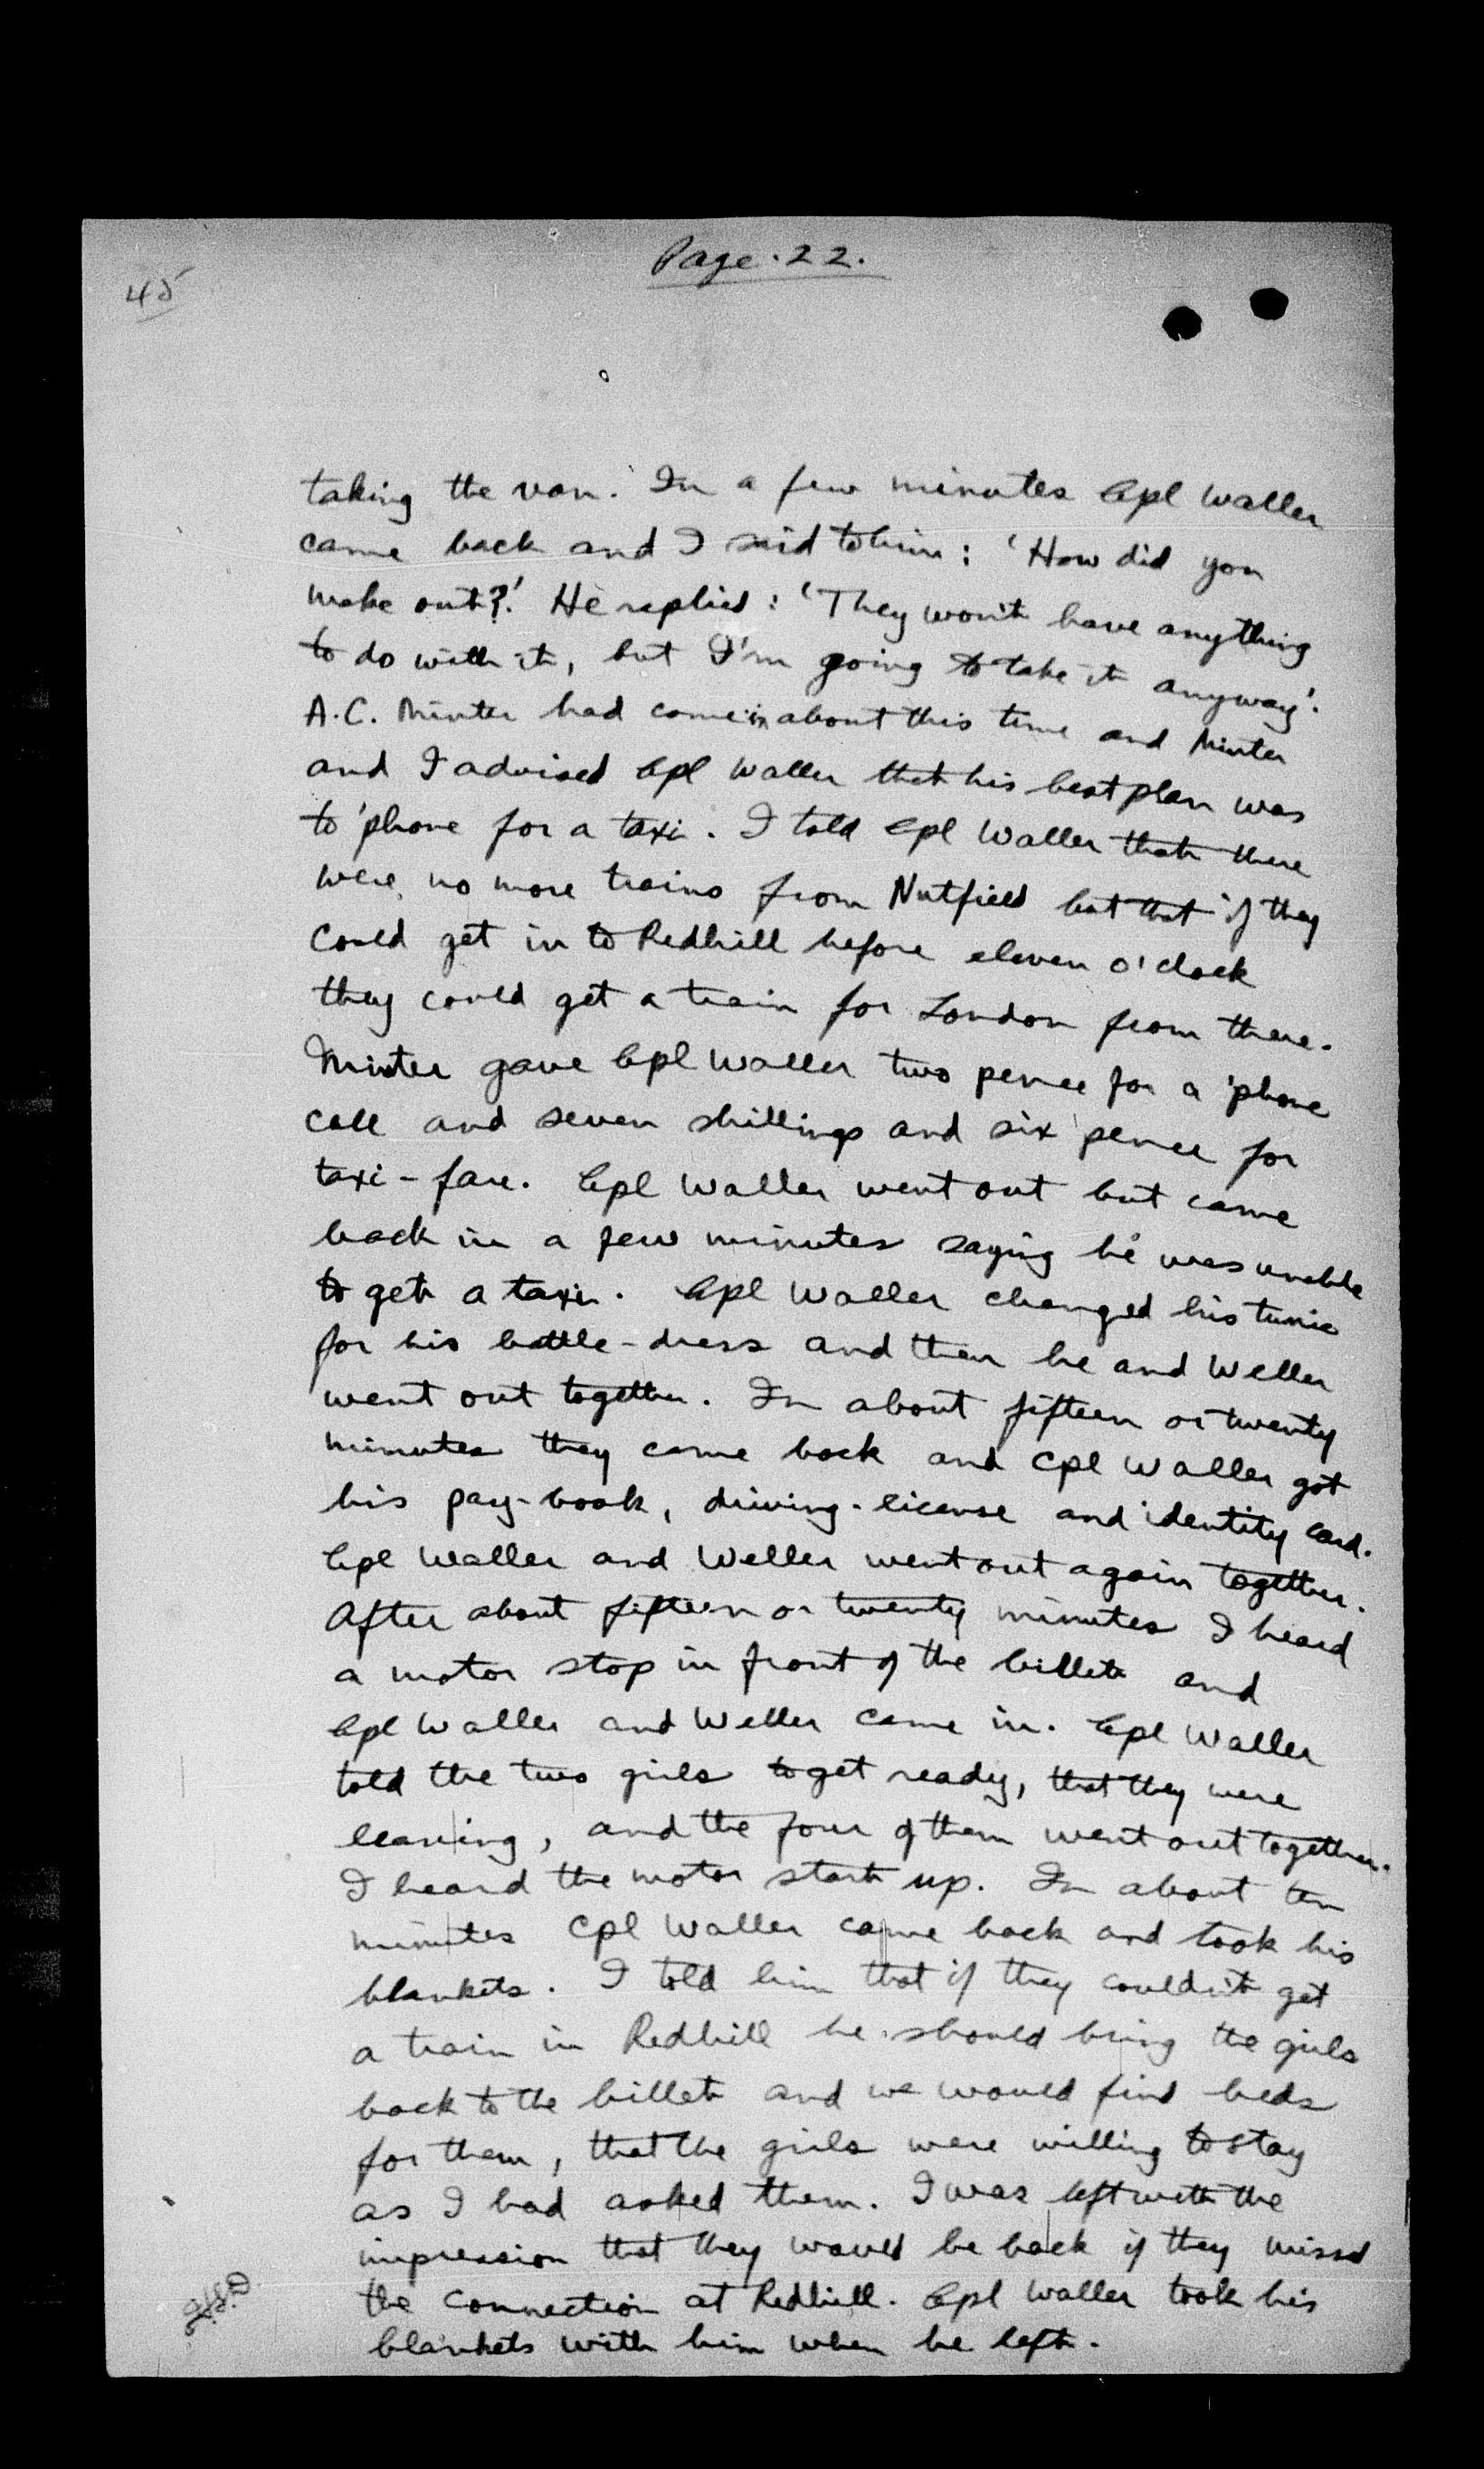 Page 22.
45
taking the van. In a few minutes Cpl Waller
came back and I said to him: 'How did you
make out?' He replied: 'They won't have anything
to do with it, but I'm going to take it anyway'.
A.C. Minter had come in about this time and Minter
and I advised Cpl Waller that his best plan was
to 'phone for a taxi. I told Cpl Waller that there
were no more trains from Nutfield but that if they
could get in to Redhill before eleven o'clock
they could get a train for London from there.
Minter gave Cpl Waller two pence for a 'phone
call and seven shillings and six pence for
taxi-fare. Cpl Waller went out but came
back in a few minutes saying he was unable
to get a taxi. Cpl Waller changed his tunic
for his battle-dress and then he and Weller
went out together. In about fifteen or twenty
minutes they came back and Cpl Waller got
his pay-book, driving-license and identity card.
Cpl Waller and Weller went out again together.
After about fifteen or twenty minutes I heard
a motor stop in front of the billet and
Cpl Waller and Weller came in. Cpl Waller
told the two girls to get ready, that they were
leaving, and the four of them went out together.
I heard the motor start up. In about ten
minutes Cpl Waller came back and took his
blankets. I told him that if they couldn't get
a train in Redhill he should bring the girls
back to the billet and we would find beds
for them, that the girls were willing to stay
as I had asked them. I was left with the
impression that they would be back if they missed
the connection at Redhill. Cpl Waller took his
blankets with him when he left.